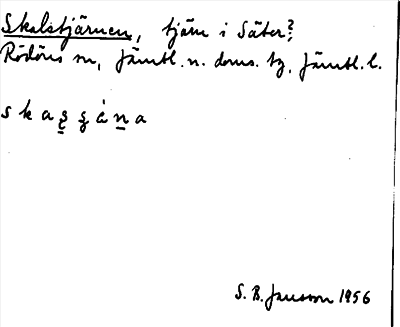 Skalstjärnen, tjärn i Säter?,
Rödöns sn, Jämtl. n. doms. tg, Jämtl. l.
s k a
S. B. Jansson 1956